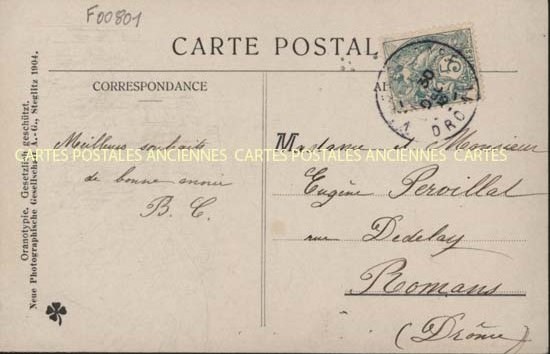 F00801
CARTE POSTALE
CORRESPONDANCE
Meilleurs souhaits
de bonne année
B. C.
Madame et Monsieur
Eugène Pervillat
rue Dedelay
Romans
(Drôme)
DROME
30
5
CARTES POSTALES ANCIENNES CARTES POSTALES ANCIENNES CARTES POSTALES ANCIENNES
Oranotypie, Gesetzlich geschützt.
Neue Photographische Gesellschaft A.-G., Steglitz 1904.